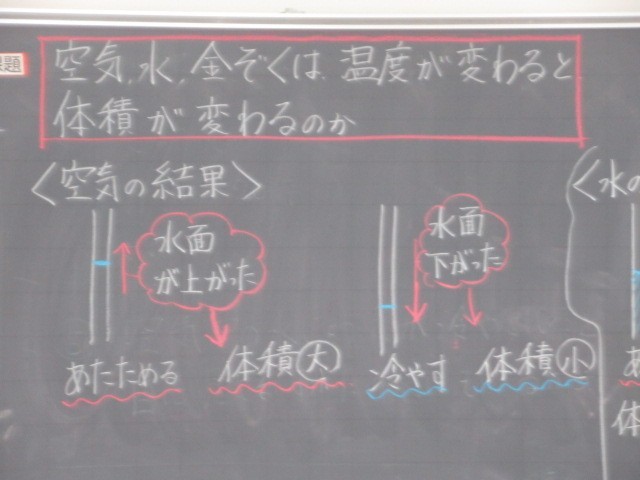 題
空気、水、金ぞくは、温度が変わると
体積が変わるのか
〈空気の結果〉
水面
が上がった
あたためる
体積大
水面
下がった
冷やす
体積小
〈水の
あ
体